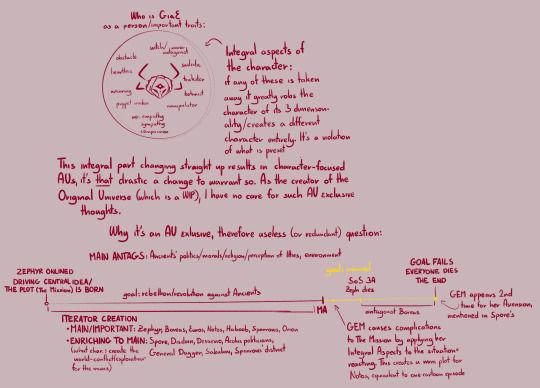 Who is GiaE
as a person/important traits:
witch/
antagonist
obstacle
sadistic
heartless
trickster
botanist
puppet master
manipulator
no: empathy
sympathy
compassion
Integral aspects
of the character:
if any of these is taken
away it greatly robs the
character of its 3 dimension-
ality/creates a different
character entirely. It's a violation
of what is preset
This integral part changing straight up results in character-focused
AUs, it's that drastic a change to warrant so. As the creator of the
Original Universe (which is a WIP), I have no care for such AU exclusive
thoughts.
Why it's an AU exlusive, therefore useless (or redundant) question:
MAIN ANTAGS: Ancients' politics/morals/religion/perception of Itties, environment
ZEPHYR ONLINED
DRIVING CENTRAL IDEA/
THE PLOT (The Mission) IS BORN
goal: rebellion/revolution against Ancients
MA
goal: survival
SoS 3A
Zeph dies
antagonist Boreas
GOAL FAILS
EVERYONE DIES
THE END
ITERATOR CREATION
• MAIN/IMPORTANT: Zephyr, Boreas, Euros, Notos, Haboob, Sparrows, Orion
• ENRICHING TO MAIN: Spore,
General Dagger, Sparrows' district
GEM causes complications
to The Mission by applying her
Integral Aspects to the situation+
reacting. This creates a mini plot for
Notos, equivalent to one cartoon episode
GEM appears 2nd
time for her Ascension,
mentioned in Spore's